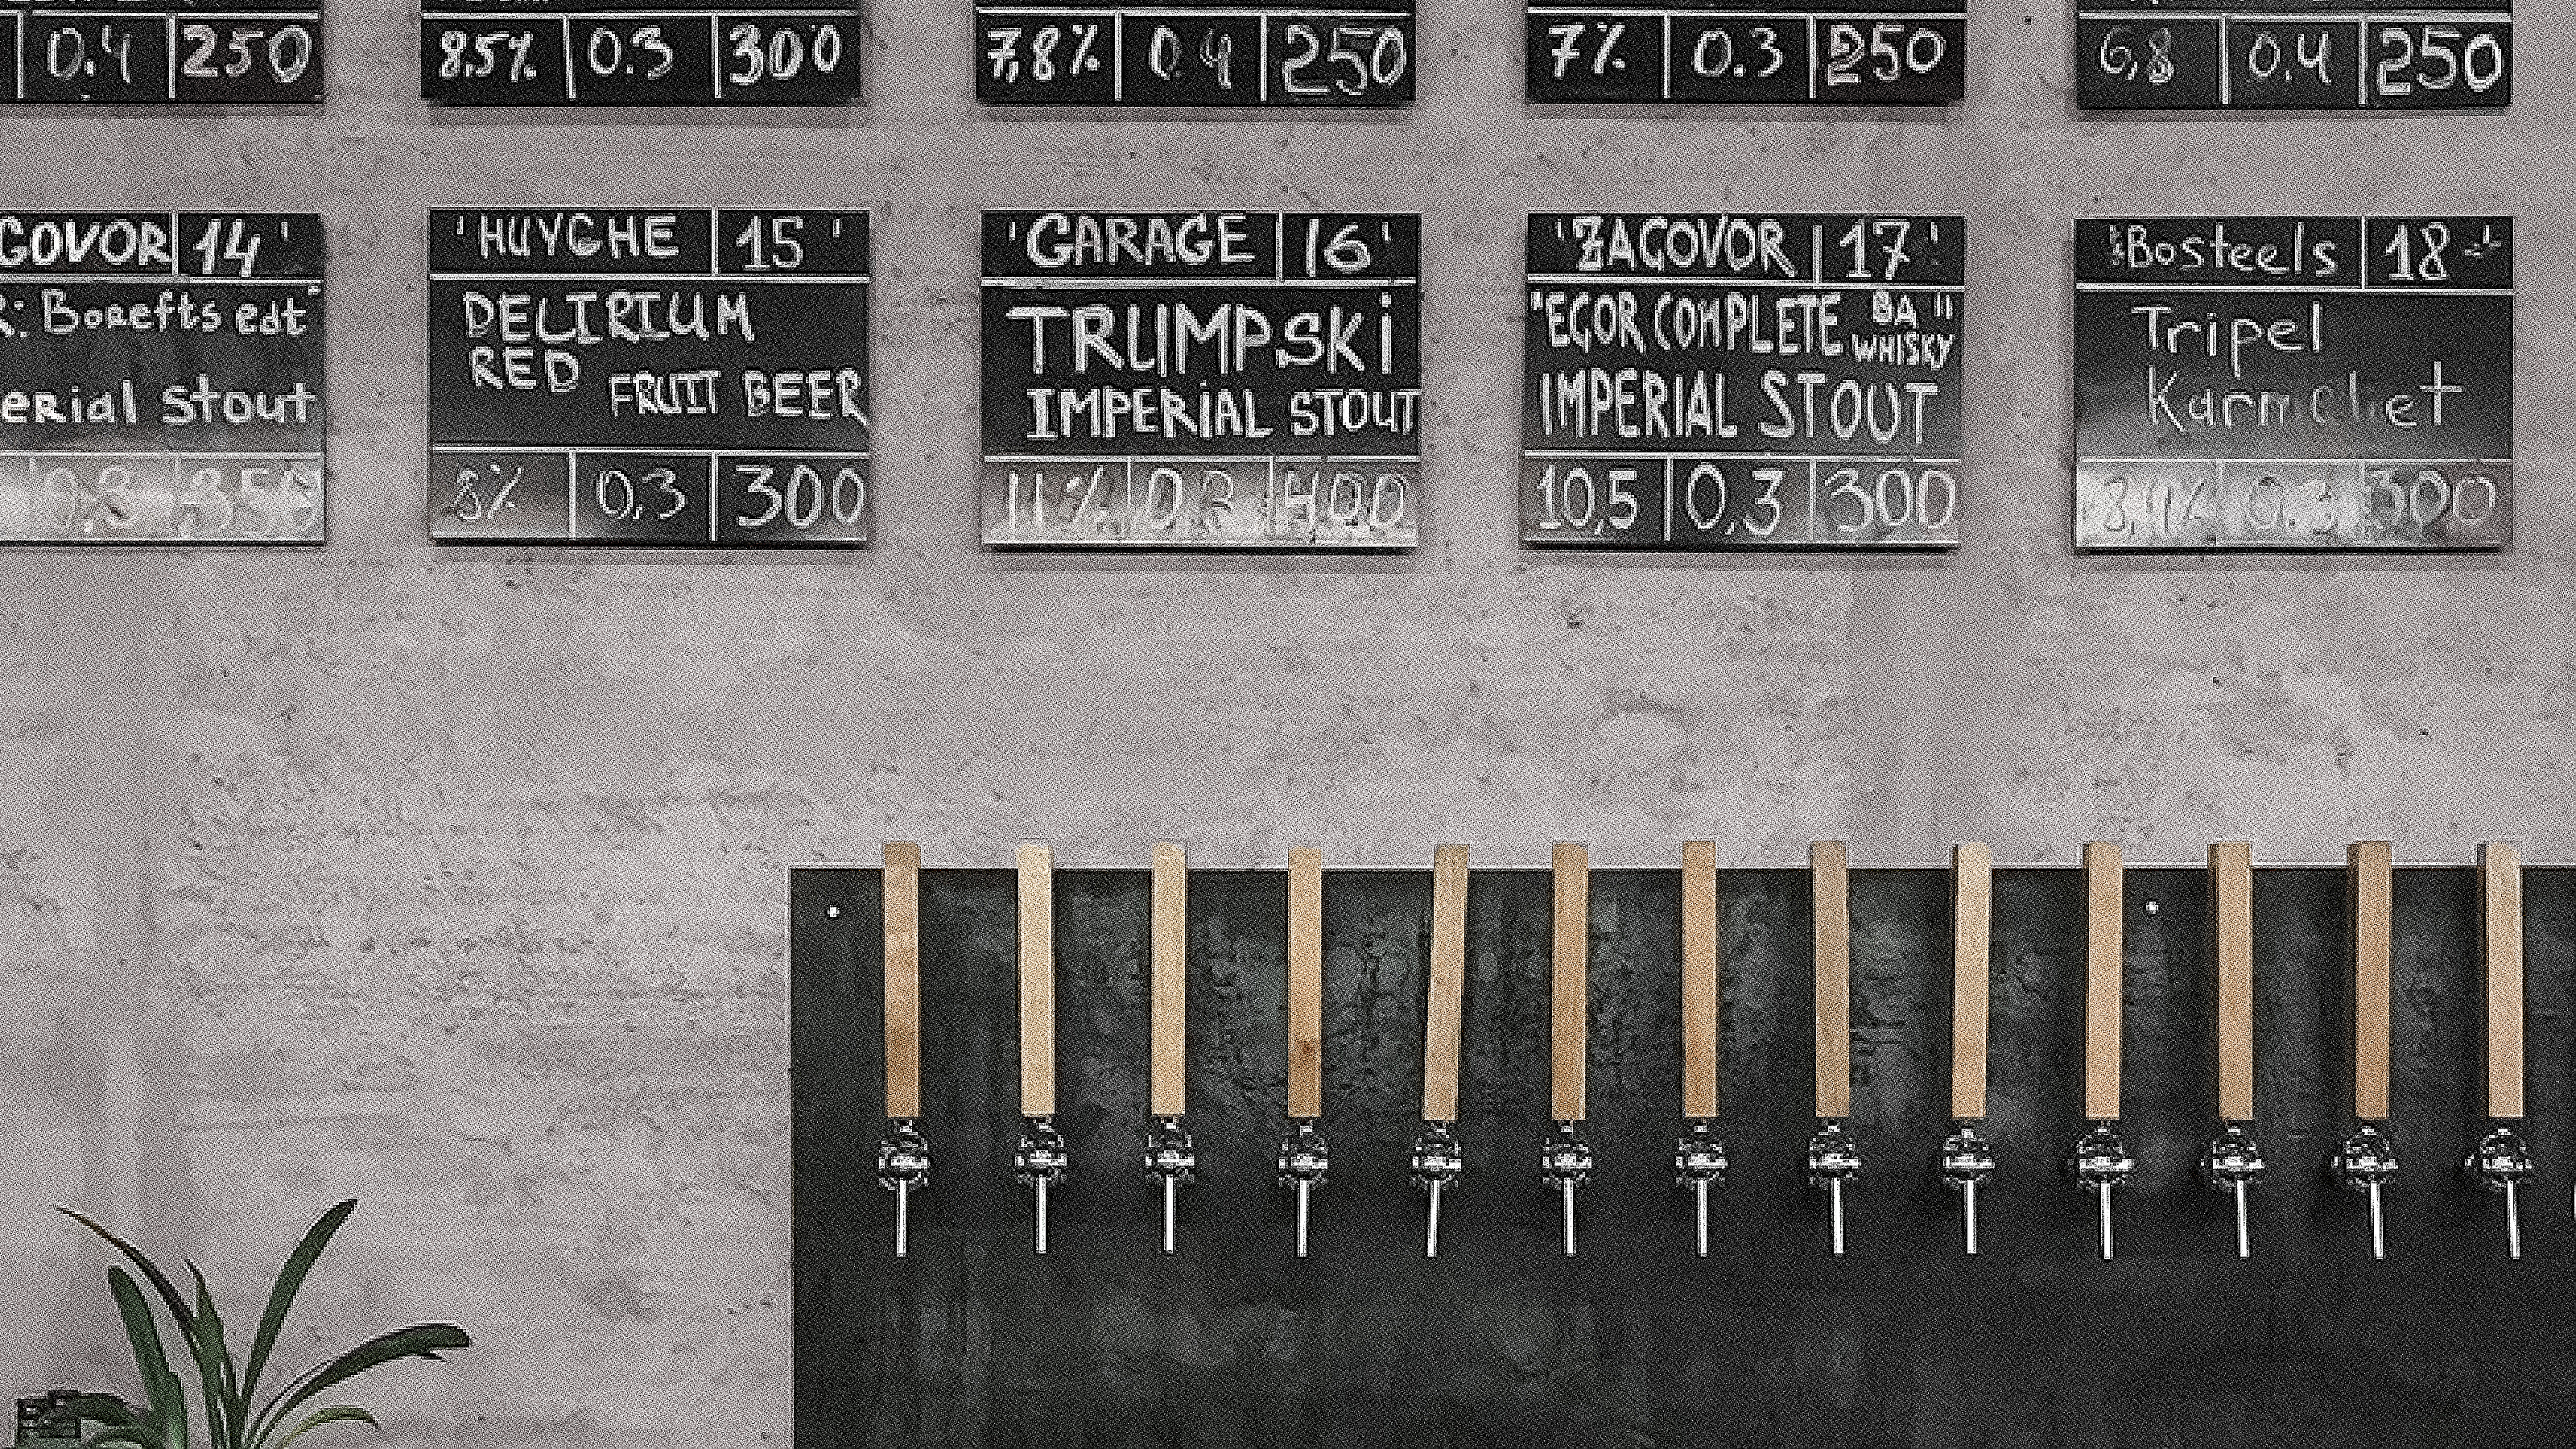 0.4 250
8.5% 0.3 300
7,8% 0.4 250
7% 0.3 250
6,8 0.4 250
GOVOR 14 '
R: Borefts edt"
erial Stout
0.3 350
' HUYGHE 15 '
DELIRIUM
RED
FRUIT BEER
8% 0,3 300
' GARAGE 16 '
TRUMPSKi
IMPERiAL STOUT
11% 0.3 400
' ZAGOVOR 17 '
"EGOR COMPLETE BA "
WHISKY
IMPERIAL STOUT
10,5 0,3 300
Bosteels 18
Tripel
Karmeliet
8,4% 0.3 300